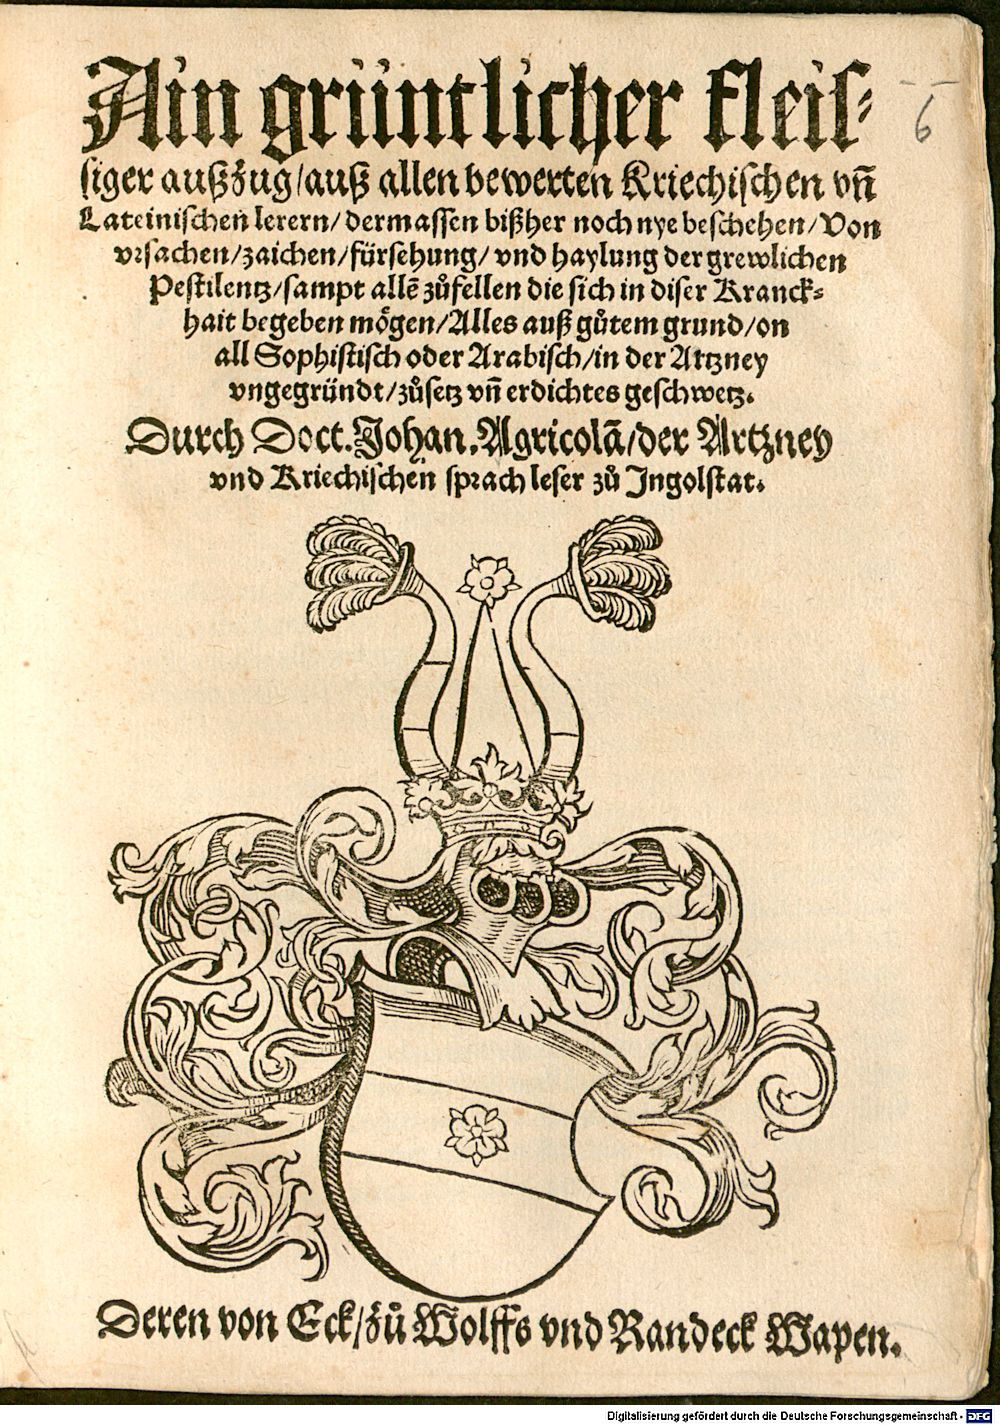 Ain grüntlicher fleis-
siger außzug/auß allen bewerten Kriechischen vñ
Lateinischen lerern/dermassen bißher noch nye beschehen/Von
vrsachen/zaichen/fürsehung/vnd haylung der grewlichen
Pestilentz/sampt allẽ zůfellen die sich in diser Kranck-
hait begeben mögen/Alles auß gůtem grund/on
all Sophistisch oder Arabisch/in der Artzney
vngegründt/zůsetz vñ erdichtes geschwetz.
Durch Doct. Johan. Agricolã/der Artzney
vnd Kriechischen sprach leser zů Jngolstat.
6
Deren von Eck/zů Wolffs vnd Randeck Wapen.
Digitalisierung gefördert durch die Deutsche Forschungsgemeinschaft - DFG